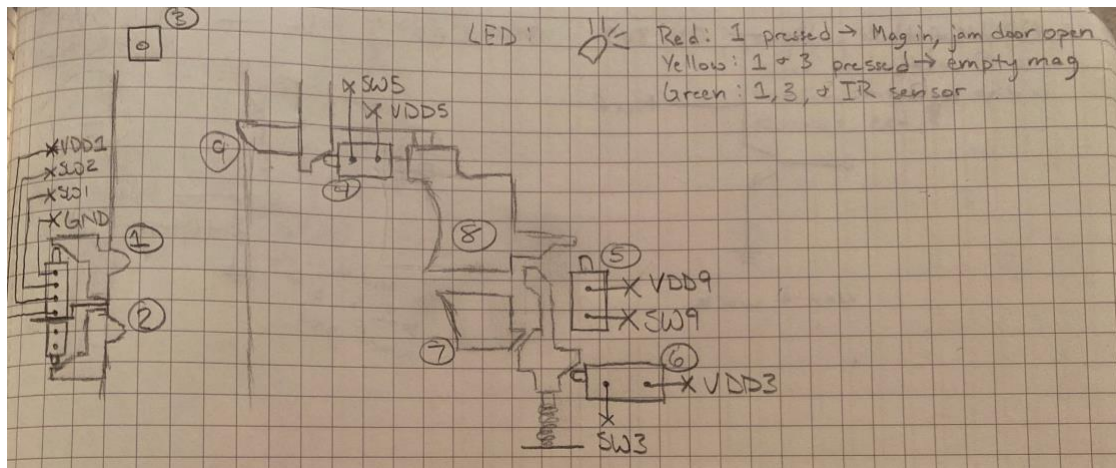 ③
LED: Red: 1 pressed → Mag in, jam door open
Yellow: 1 + 3 pressed → empty mag
Green: 1, 3, + IR sensor
SW5
VDD5
⑨
④
VDD1
SW2
SW1
GND
①
⑧
⑤
VDD9
SW9
②
⑦
⑥
VDD3
SW3